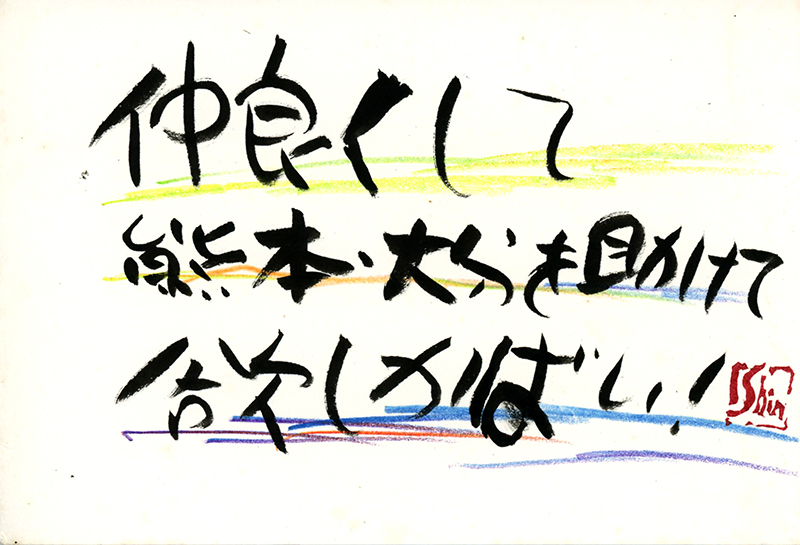 仲良くして
熊本・大分を助けて
欲しかばい!
Shin